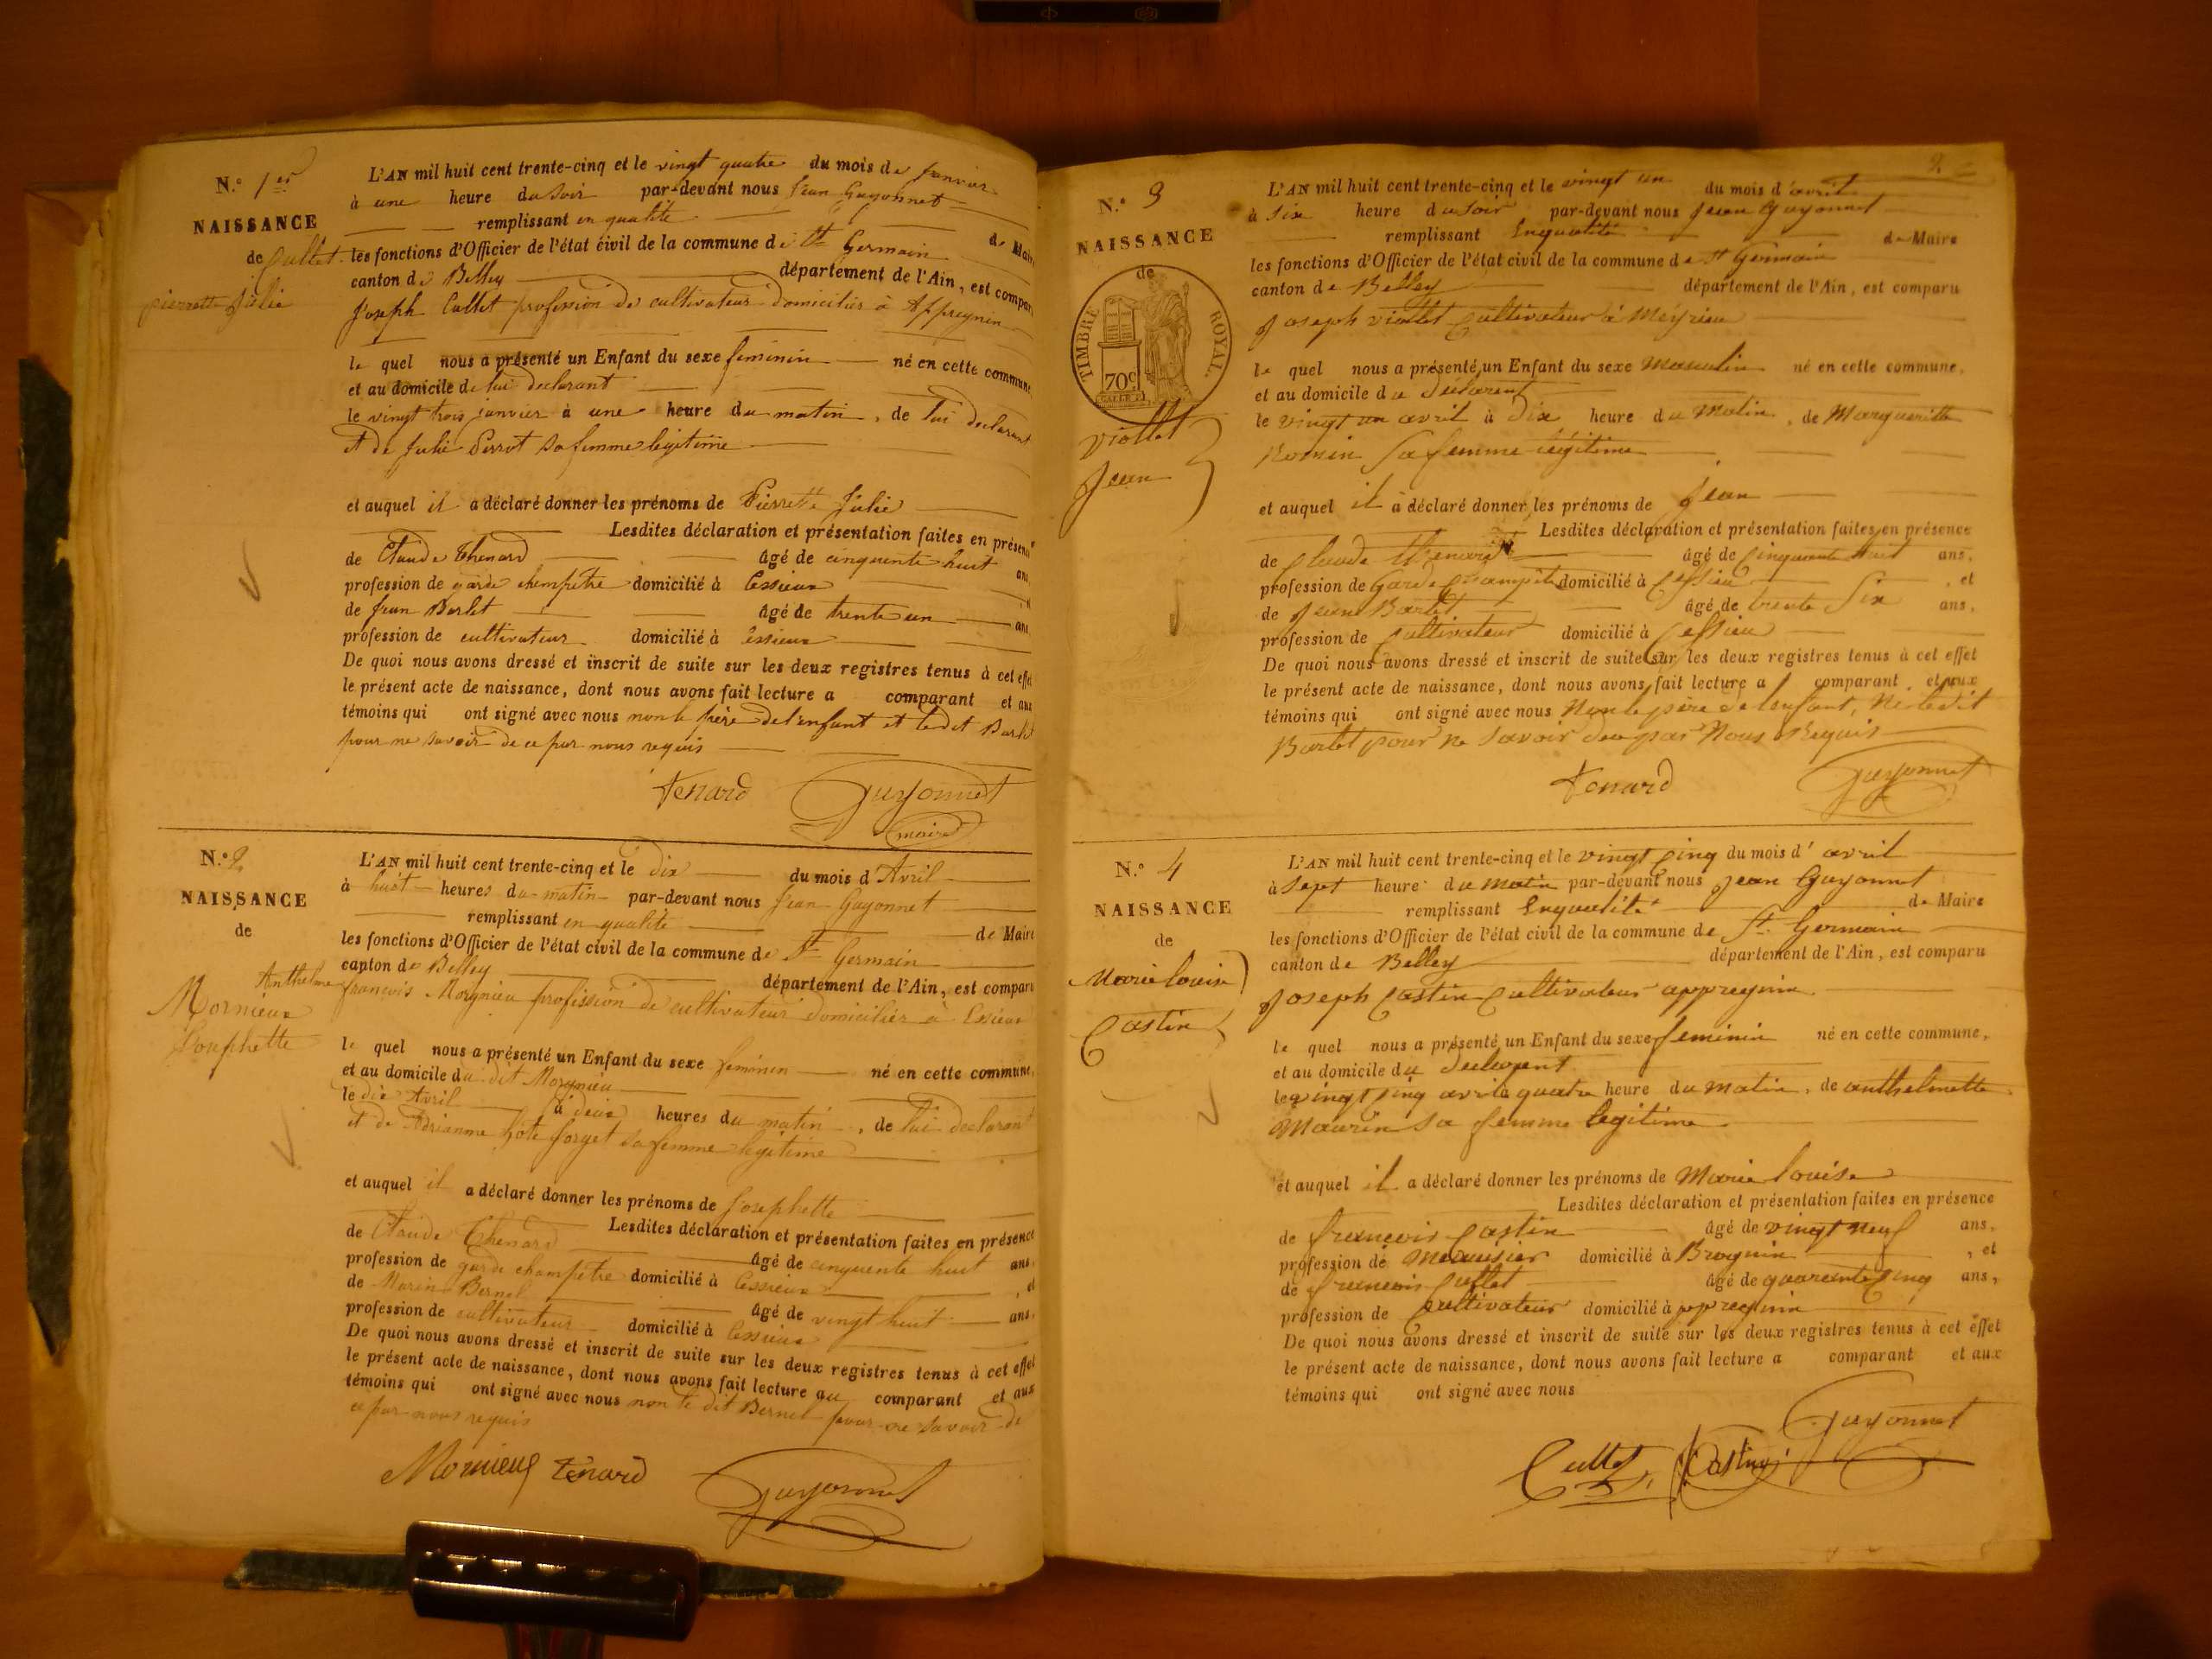 N.° 1er
NAISSANCE
de Cullet
pierrette Julie
L'AN mil huit cent trente-cinq et le vingt quatre du mois de janvier
à une heure du soir par-devant nous Jean Guyonnet
remplissant en qualité de Maire
les fonctions d'Officier de l'état civil de la commune de St Germain
canton de Belley département de l'Ain, est comparu
Joseph Cullet profession de cultivateur domicilier à Appregnin
le quel nous a présenté un Enfant du sexe feminin né en cette commune,
et au domicile de lui declarant
le vingt trois janvier à une heure du matin, de lui declarant
et de Julie Perrot sa femme legitime
et auquel il a déclaré donner les prénoms de Pierrette Julie
Lesdites déclaration et présentation faites en présence
de Claude Thenard âgé de cinquente huit ans,
profession de garde champetre domicilié à Cessieux , et
de Jean Barlet âgé de trente un ans
profession de cultivateur domicilié à Cessieux
De quoi nous avons dressé et inscrit de suite sur les deux registres tenus à cet effet
le présent acte de naissance, dont nous avons fait lecture a comparant et aux
témoins qui ont signé avec nous non le père de l'enfant et ledit Barlet
pour ne savoir de ce par nous requis
Tenard Guyonnet
maire
N.° 2
NAISSANCE
de
Anthelme
Mornieux
Josephette
L'AN mil huit cent trente-cinq et le dix du mois d'Avril
à huit heures du matin par-devant nous Jean Guyonnet
remplissant en qualité de Maire
les fonctions d'Officier de l'état civil de la commune de St Germain
canton de Belley département de l'Ain, est comparu
françois Mornieu profession de cultivateur domicilier à Cessieux
le quel nous a présenté un Enfant du sexe feminin né en cette commune,
et au domicile du dit Mornieu
le dix Avril à deux heures du matin, de lui declarant
et de Adrianne forget sa femme legitime
et auquel il a déclaré donner les prénoms de Josephette
Lesdites déclaration et présentation faites en présence
de Claude Thenard âgé de cinquente huit ans,
profession de garde champetre domicilié à Cessieux , et
de Marin Bernel âgé de vingt huit ans,
profession de cultivateur domicilié à Cessieux
De quoi nous avons dressé et inscrit de suite sur les deux registres tenus à cet effet
le présent acte de naissance, dont nous avons fait lecture au comparant et aux
témoins qui ont signé avec nous non le dit Bernel pour ne savoir de
ce par nous requis
Mornieux Tenard Guyonnet
2
N.° 3
NAISSANCE
de
TIMBRE ROYAL.
70c
viollet
Jean
L'AN mil huit cent trente-cinq et le vingt un du mois d'avril
à six heure du soir par-devant nous Jean Guyonnet
remplissant Enqualité de Maire
les fonctions d'Officier de l'état civil de la commune de St Germain
canton de Belley département de l'Ain, est comparu
Joseph viollet Cultivateur à Meyrieu
le quel nous a présenté un Enfant du sexe Masculin né en cette commune,
et au domicile du déclarent
le vingt un avril à dix heure du Matin, de Margueritte
Romin sa femme légitime
et auquel il a déclaré donner les prénoms de Jean
Lesdites déclaration et présentation faites en présence
de Claude Thenard âgé de Cinquante huit ans,
profession de Garde Champêtre domicilié à Cessieu , et
de Jean Barlet âgé de trente Six ans,
profession de Cultivateur domicilié à Cessieu
De quoi nous avons dressé et inscrit de suite sur les deux registres tenus à cet effet
le présent acte de naissance, dont nous avons fait lecture a comparant et aux
témoins qui ont signé avec nous Non le père de lenfant, Ni ledit
Barlet pour ne Savoir dece par Nous Requis
Tenard Guyonnet
N.° 4
NAISSANCE
de
Marie louise
Castin
L'AN mil huit cent trente-cinq et le vingt cinq du mois d'avril
à Sept heure du matin par-devant nous Jean Guyonnet
remplissant Enqualité de Maire
les fonctions d'Officier de l'état civil de la commune de St Germain
canton de Belley département de l'Ain, est comparu
Joseph Castin Cultivateur appregnin
le quel nous a présenté un Enfant du sexe feminin né en cette commune,
et au domicile du declarent
le vingt cinq avril à quatre heure du matin, de anthelmette
Maurin sa femme legitime
et auquel il a déclaré donner les prénoms de Marie louise
Lesdites déclaration et présentation faites en présence
de francois Castin âgé de vingt neuf ans,
profession de Menuisier domicilié à Brognin , et
de francois Cullet âgé de quarante cinq ans,
profession de Cultivateur domicilié à appregnin
De quoi nous avons dressé et inscrit de suite sur les deux registres tenus à cet effet
le présent acte de naissance, dont nous avons fait lecture a comparant et aux
témoins qui ont signé avec nous
Guyonnet
Cullet Castin